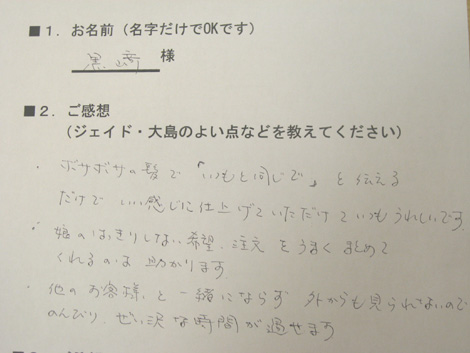 ■1．お名前（名字だけでOKです）
黒崎 様
■2．ご感想
（ジェイド・大島のよい点などを教えてください）
・ボサボサの髪で「いつもと同じで」と伝える
だけでいい感じに仕上げていただけていつもうれしいです。
・娘のはっきりしない希望、注文をうまくまとめて
くれるのは助かります。
・他のお客様と一緒にならず外からも見られないので
のんびり、ぜい沢な時間が過せます